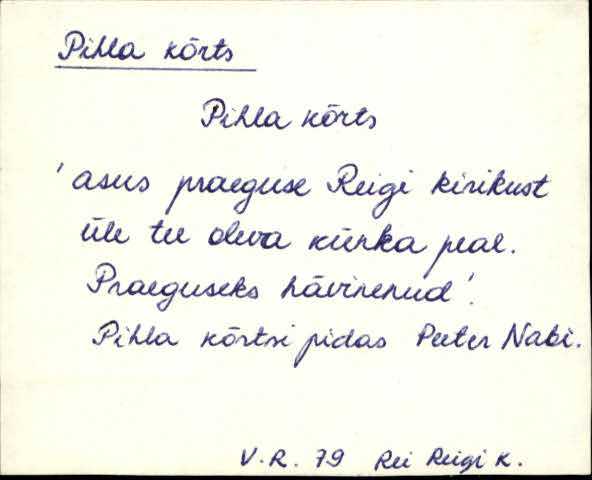 Pihla kõrts
Pihla kõrts
'asus praeguse Reigi kirikust
üle tee oleva künka peal.
Praeguseks hävinenud'.
Pihla kõrtsi pidas Peeter Nabi.
V.R. 79 Rei Reigi k.